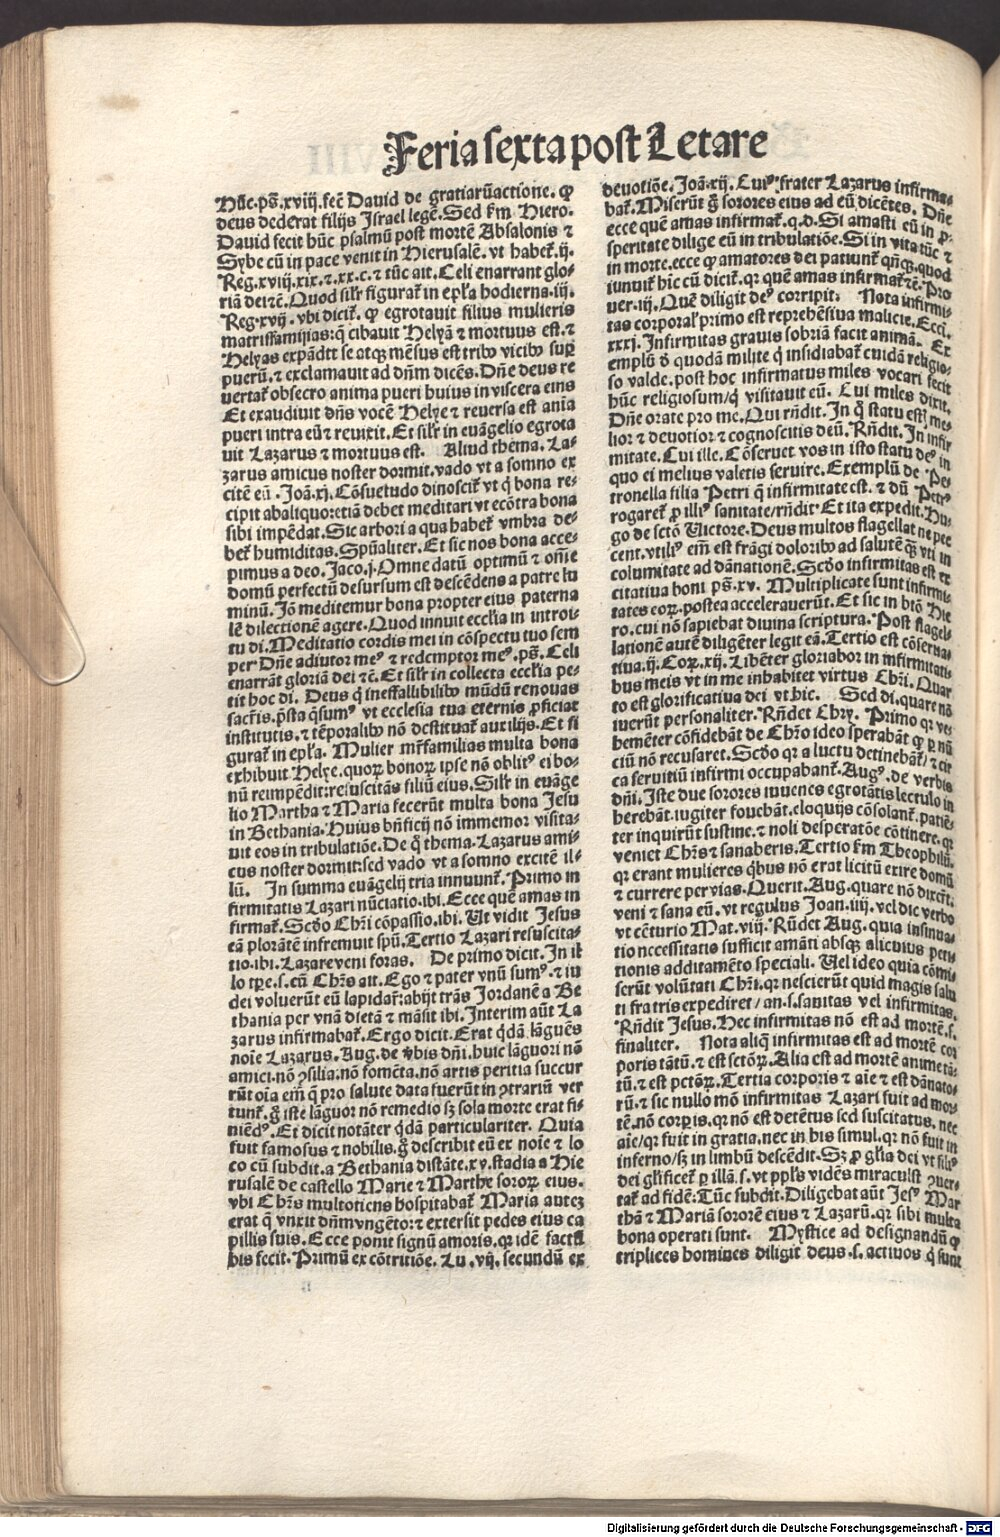 Feria sexta post Letare
Hūc. ps̄. xviij. fec̄ David de gratiarūactione. ꝙ
deus dederat filijs Israel legē. Sed ẜm Hiero.
Dauid fecit hūc psalmū post mortē Absalonis ⁊
Sybe cū in pace venit in Hierusalē. vt habet̄. ij.
Reg. xviij. xix. ⁊. xx. c. ⁊ tūc ait. Celi enarrant glo-
riā dei ⁊c̄. Quod sil̄r figurat̄ in ep̄la hodierna. iij.
Reg. xvij. vbi dicit̄. ꝙ egrotauit filius mulieris
matrisfamilias: q̄ cibauit Helyā ⁊ mortuus est. ⁊
Helyas expādit se atqꝫ mēsus est tribꝰ vicibꝰ suꝑ
puerū. ⁊ exclamauit ad dn̄m dicēs. Dn̄e deus re
uertat̄ obsecro anima pueri huius in viscera eius
Et exaudiuit dn̄s vocē Helye ⁊ reuersa est aīa
pueri intra eū ⁊ reuixit. Et sil̄r in euāgelio egrota
uit Lazarus ⁊ mortuus est. Aliud thema. La-
zarus amicus noster dormit. vado vt a somno ex
citē eū. Joā. xj. Cōsuetudo dinoscit̄ vt q̄ bona re-
cipit ab aliquo etiā debet meditari vt ecōtra bona
sibi impēdat. Sic arbori a qua habet̄ vmbra de-
bet̄ humiditas. Spūaliter. Et sic nos bona acce-
pimus a deo. Jaco. j. Omne datū optimū ⁊ om̄e
donū perfectū desursum est descēdens a patre lu
minū. Jō meditemur bona propter eius paterna
lē dilectionē agere. Quod innuit eccl̄ia in introi-
tu di. Meditatio cordis mei in cōspectu tuo sem
per Dn̄e adiutor meꝰ ⁊ redemptor meꝰ. ps̄. Celi
enarrāt gloriā dei ⁊c̄. Et sil̄r in collecta eccl̄ia pe-
tit hoc di. Deus q̄ ineffabilibꝰ mūdū renouas
sacr̄is. p̄sta q̄sumꝰ vt ecclesia tua eternis ꝓficiat
institutis. ⁊ tēporalibꝰ nō destituat̄ auxilijs. Et fi
gurat̄ in ep̄la. Mulier mr̄familias multa bona
exhibuit Helye. quoꝝ bonoꝝ ipse nō oblitꝰ ei bo-
nū reimpēdit: resuscitās filiū eius. Sil̄r in euāge
lio Martha ⁊ Maria fecerūt multa bona Jesu
in Bethania. Huius bn̄ficij nō immemor visita-
uit eos in tribulatiōe. De q̄ thema. Lazarus ami-
cus noster dormit: sed vado vt a somno excitē il-
lū. In summa euāgelij tria innuunt̄. Primo in
firmitatis Lazari nūciatio. ibi. Ecce quē amas in
firmat̄. Scd̄o Chr̄i cōpassio. ibi. Ut vidit Jesus
eā plorātē infremuit spū. Tertio Lazari resuscita-
tio. ibi. Lazare veni foras. De primo dicit. In il
lo tꝑe. s. cū Chr̄s ait. Ego ⁊ pater vnū sumꝰ. ⁊ iu
dei voluerūt eū lapidar̄: abijt trās Jordanē a Be
thania per vnā dietā ⁊ māsit ibi. Interim aūt La
zarus infirmabat̄. Ergo dicit. Erat q̄dā lāguēs
noīe Lazarus. Aug. de v̄bis dn̄i. huic lāguori nō
amici. nō ꝯsilia: nō fomēta. nō artis peritia succur
rūt oīa em̄ q̄ pro salute data fuerūt in ꝯtrariū ver
tunt̄. g̊ iste lāguor nō remedio sꝫ sola morte erat fi-
niēdꝰ. Et dicit notāter q̄dā particulariter. Quia
fuit famosus ⁊ nobilis. g̊ describit eū ex noīe ⁊ lo
co cū subdit. a Bethania distāte. xv. stadia a Hie
rusalē de castello Marie ⁊ Marthe sororꝝ eius.
vbi Chr̄s multotiens hospitabat̄ Maria autez
erat q̄ vnxit dn̄m vngēto: ⁊ extersit pedes eius ca
pillis suis. Ecce ponit signū amoris. qr idē factū
bis fecit. Primū ex cōtritiōe. Lu. vij. secundū ex
deuotiōe. Joā. xij. Cuiꝰ frater Lazarus infirma-
bat̄. Miserūt g̊ sorores eius ad eū dicētes. Dn̄e
ecce quē amas infirmat̄. q. d. Si amasti eū in ꝓ-
speritate dilige eū in tribulatiōe. Si in vita tūc ⁊
in morte. ecce ꝙ amatores dei patiunt̄ qn̄qꝫ. quod
innuit̄ hic cū dicit̄. qr quē amas infirmat̄ ⁊c̄. Pro
uer. iij. Quē diligit deꝰ corripit. Nota infirmi-
tas corporal̄ primo est reprehēsiua malicie. Eccī.
xxxj. Infirmitas grauis sobriā facit animā. Ex
emplū ð quodā milite q̄ insidiabat̄ cuidā religio-
so valde. post hoc infirmatus miles vocari fecit
hūc religiosum/q̄ visitauit eū. Cui miles dixit.
Dn̄e orate pro me. Qui rn̄dit. In q̊ statu estis me-
lior ⁊ deuotior ⁊ cognoscitis deū. Rn̄dit. In infir
mitate. Cui ille. Cōseruet vos in isto statu deꝰ in
quo ei melius valetis seruire. Exemplū de Pe-
tronella filia Petri q̄ infirmitate est. ⁊ dū Petrꝰ
rogaret̄ ꝓ illiꝰ sanitate/rn̄dit. Et ita expedit. Hu-
go de sctō Uictore. Deus multos flagellat ne pec
cent. vtiliꝰ em̄ est frāgi doloribꝰ ad salutē q̄ꝫ vti in
columitate ad dānationē. Scd̄o infirmitas est ex
citatiua boni ps̄. xv. Multiplicate sunt infirmi
tates eoꝝ. postea accelerauerūt. Et sic in btō Hie
ro. cui nō sapiebat diuina scriptura. Post flagel-
lationē autē diligēter legit eā. Tertio est cōserua-
tiua. ij. Cor. xij. Libēter gloriabor in infirmitati-
bus meis vt in me inhabitet virtus Chr̄i. Quar
to est glorificatiua dei vt hic. Sed di. quare nō
iuerūt personaliter. Rn̄det Chry. Primo qr ve-
hemēter cōfidebāt de Chr̄o ideo sperabāt ꝙ ꝑ nū
ciū nō recusaret. Scd̄o qr a luctu detinebāt̄/⁊ cir
ca seruitiū infirmi occupabant̄. Augꝰ. de verbis
dn̄i. Iste due sorores iuuenes egrotātis lectulo in
herebāt. iugiter fouebāt. eloquijs cōsolant̄. patiē-
ter inquirūt sustine. ⁊ noli desperatōe cōtinere. qr
veniet Chr̄s ⁊ sanaberis. Tertio ẜm Theophilū.
qr erant mulieres q̄bus nō erat licitū exire domū
⁊ currere per vias. Querit. Aug. quare nō dixer̄t.
veni ⁊ sana eū. vt regulus Joan. iiij. vel dic verbo
vt cēturio Mat. viij. Rn̄det Aug. quia insinua-
tio necessitatis sufficit amāti absqꝫ alicuius peti
tionis additamēto speciali. Uel ideo quia cōmi-
serūt volūtati Chr̄i. qr nescierūt quid magis salu
ti fratris expediret/an. s. sanitas vel infirmitas.
Rn̄dit Jesus. Hec infirmitas nō est ad mortē. s.
finaliter. Nota aliq̄ infirmitas est ad mortē cor
poris tātū. ⁊ est sctōꝝ. Alia est ad mortē anime tā-
tū. ⁊ est pctōꝝ. Tertia corporis ⁊ aīe ⁊ est dānato-
rū. ⁊ sic nullo mō infirmitas Lazari fuit ad mor-
tē. nō corꝑis. qr nō est detētus sed suscitatus. nec
aīe/qr fuit in gratia. nec in his simul. qr nō fuit in
inferno/sꝫ in limbū descēdit. Sꝫ ꝓ gl̄ia dei vt filiꝰ
dei gl̄ificet̄ ꝑ illā. s. vt ppl̄s vidēs miraculū ꝯuer-
tat̄ ad fidē: Tūc subdit. Diligebat aūt Jesꝰ Mar
thā ⁊ Mariā sororē eius ⁊ Lazarū. qr sibi multa
bona operati sunt. Mystice ad designandū ꝙ
triplices homines diligit deus. s. actiuos q̄ sunt
Digitalisierung gefördert durch die Deutsche Forschungsgemeinschaft - DFG